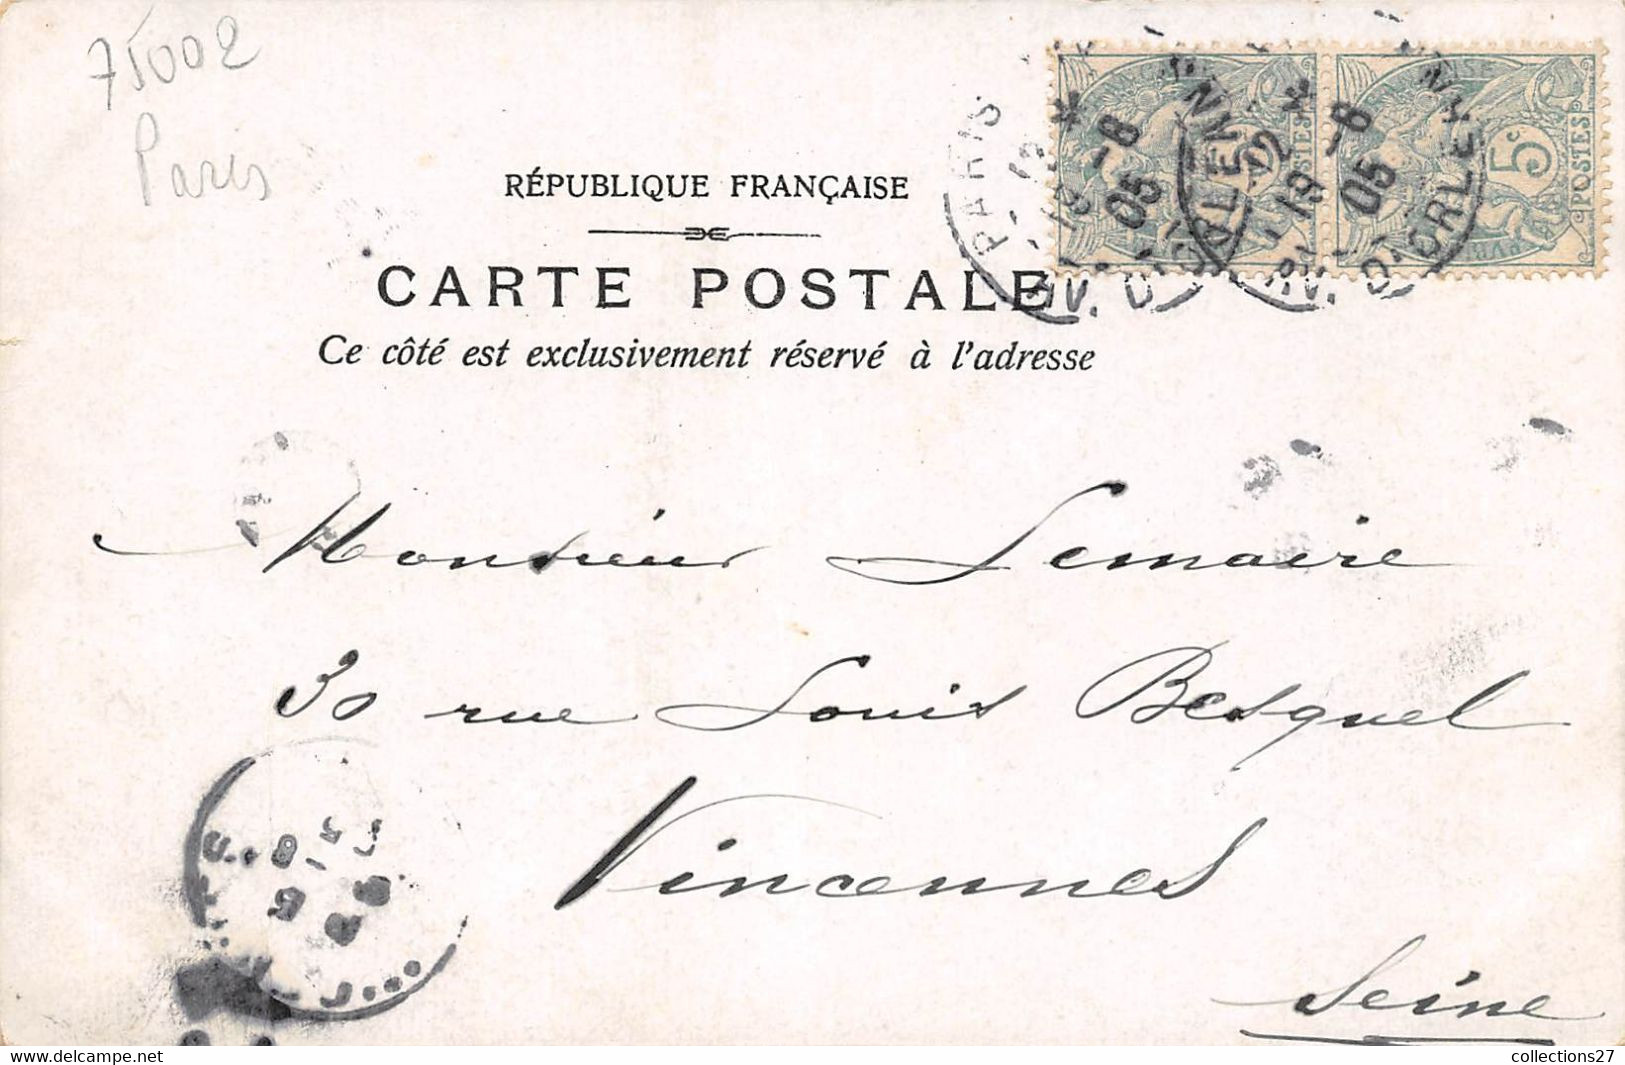 75002
Paris
RÉPUBLIQUE FRANÇAISE
CARTE POSTALE
Ce côté est exclusivement réservé à l'adresse
PARIS
AV. D'ORLÉANS
12
19 -8
05
AV. D'ORLÉANS
12
19 -8
05
5c
POSTES
Monsieur Lemaire
30 rue Louis Besquel
Vincennes
Seine
collections27